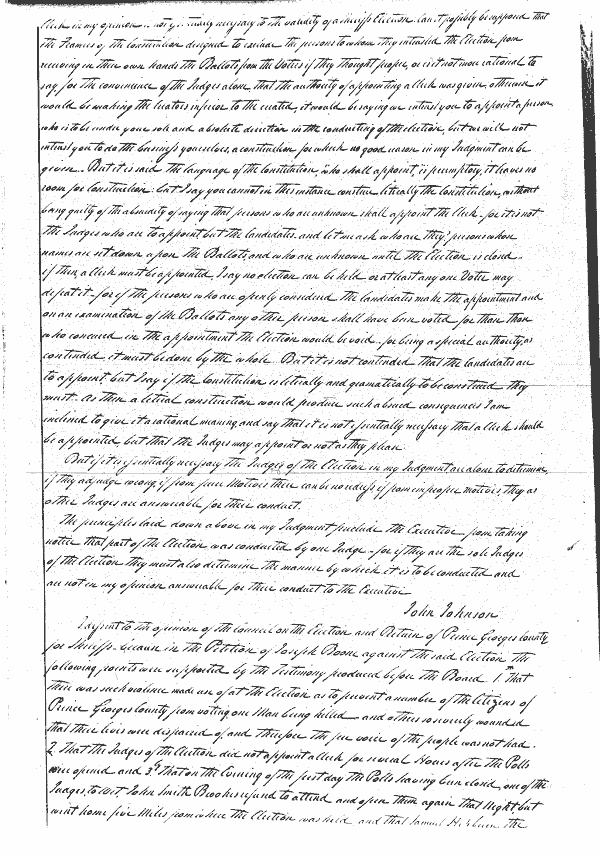 Clerk in my opinion is not essentially necessary to the validity of a sheriffs Election. Can it possibly be supposed that
the Framers of the Constitution designed to exclude the persons to whom they intrusted the Election from
receiving in their own hands the Ballots from the Voters if they thought proper, or is it not more rational to
say, for the convenience of the Judges alone, that the authority of appointing a Clerk was given, otherwise it
would be making the creators inferior to the created, it would be saying we intrust you to appoint a person
who is to be under your sole and absolute direction in the conducting of the election, but we will not
intrust you to do the business yourselves, a construction for which no good reason in my Judgment can be
given. But it is said the language of the Constitution, "who shall appoint, is peremptory, it leaves no
room for Construction: but I say you cannot in this instance construe literally the Constitution, without
being guilty of the absurdity of saying that persons who are unknown shall appoint the Clerk - for it is not
the Judges who are to appoint but the candidates. and let me ask who are they? persons whose
names are set down upon the Ballots, and who are unknown until the Election is closed -
if then, a Clerk must be appointed, I say no election can be held or at least any one Voter may
defeat it - for if the persons who are openly considered the candidates make the appointment and
on an examination of the Ballots any other person shall have been voted for than those
who concurred in the appointment the Election would be void - for being a special authority, as
contended, it must be done by the whole. But it is not contended that the candidates are
to appoint. but I say if the Constitution is literally and gramatically to be construed they
must. As then a literal construction would produce such absurd consequences I am
inclined to give it a rational meaning and say that it is not essentially necessary that a Clerk should
be appointed, but that the Judges may appoint or not as they please.
But if it is essentially necessary the Judges of the Election in my Judgment are alone to determine,
if they adjudge wrong, if from pure motives there can be no redress if from improper motives, they as
other Judges are answerable for their conduct.
The principles laid down above in my Judgment preclude the Executive from taking
notice that part of the Election was conducted by one Judge - for if they are the sole Judges
of the Election they must also determine the manner by which it is to be conducted and
are not in my opinion answerable for their conduct to the Executive
John Johnson
I dissent to the opinion of the Council on the Election and Return of Prince Georges County
for Sheriffs. because in the Petition of Joseph Boone against the said Election the
following points were supported by the Testimony produced before the Board 1st That
there was such violence made use of at the Election as to prevent a number of the Citizens of
Prince Georges County from voting one Man being killed and others so severely wounded
that their lives were despaired of and therefore the free voice of the people was not had.
2. That the Judges of the Election did not appoint a Clerk for several Hours after the Polls
were opened and 3d that on the Evening of the first day the Polls having been closed, one of the
Judges, to wit, John Smith Brookes refused to attend and open them again that Night, but
went home five Miles from where the Election was held and that Samuel the